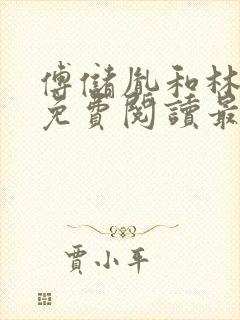 傅儲胤和林
免費閱讀最
賈小平